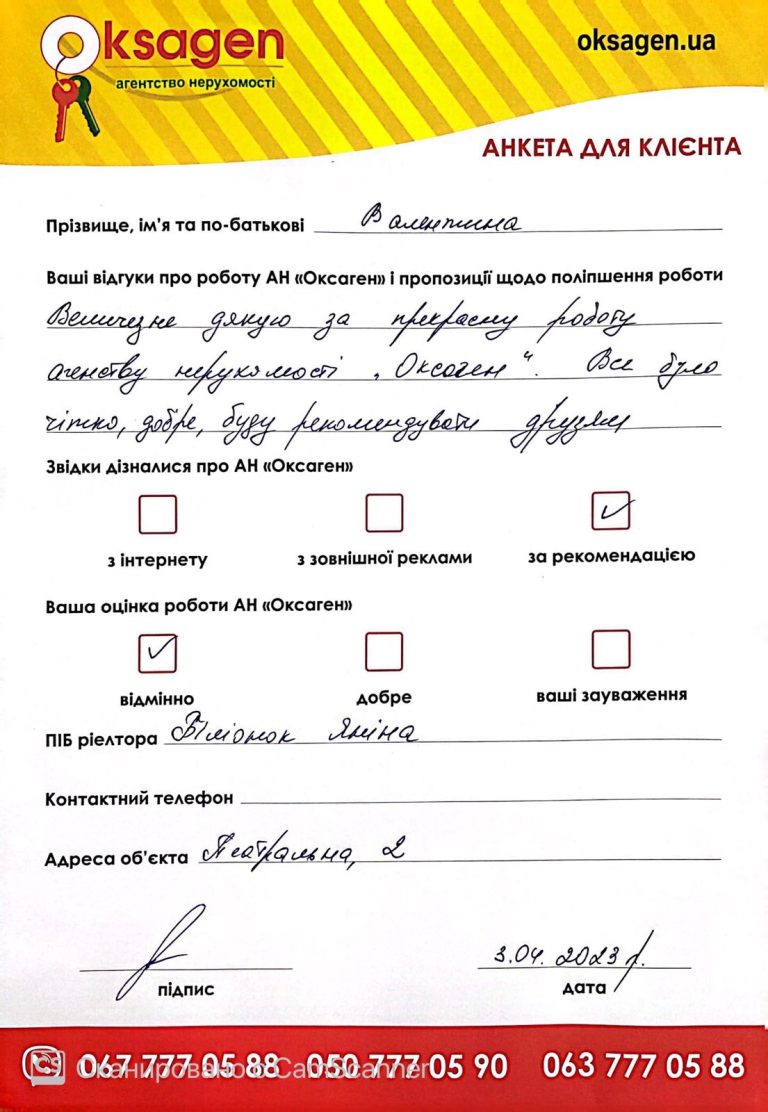 Oksagen
агентство нерухомості
oksagen.ua
АНКЕТА ДЛЯ КЛІЄНТА
Прізвище, ім'я та по-батькові Валентина
Ваші відгуки про роботу АН «Оксаген» і пропозиції щодо поліпшення роботи
Величезне дякую за прекрасну роботу
агенству нерухомості „Оксаген“. Все було
чітко, добре, буду рекомендувати друзям
Звідки дізналися про АН «Оксаген»
з інтернету з зовнішної реклами за рекомендацією
Ваша оцінка роботи АН «Оксаген»
відмінно добре ваші зауваження
ПІБ ріелтора Яніна
Контактний телефон
Адреса об'єкта Театральна, 2
3.04.2023 г.
підпис дата
067 777 05 88 050 777 05 90 063 777 05 88
Сканировано с CamScanner